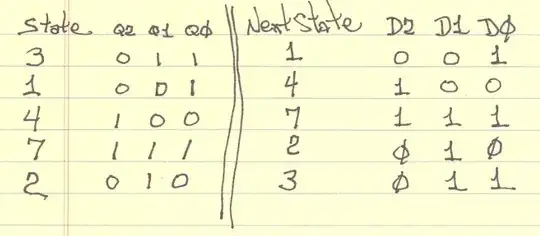 State Q2 Q1 QØ Next State D2 D1 DØ
3 0 1 1 1 0 0 1
1 0 0 1 4 1 0 0
4 1 0 0 7 1 1 1
7 1 1 1 2 Ø 1 Ø
2 0 1 0 3 Ø 1 1